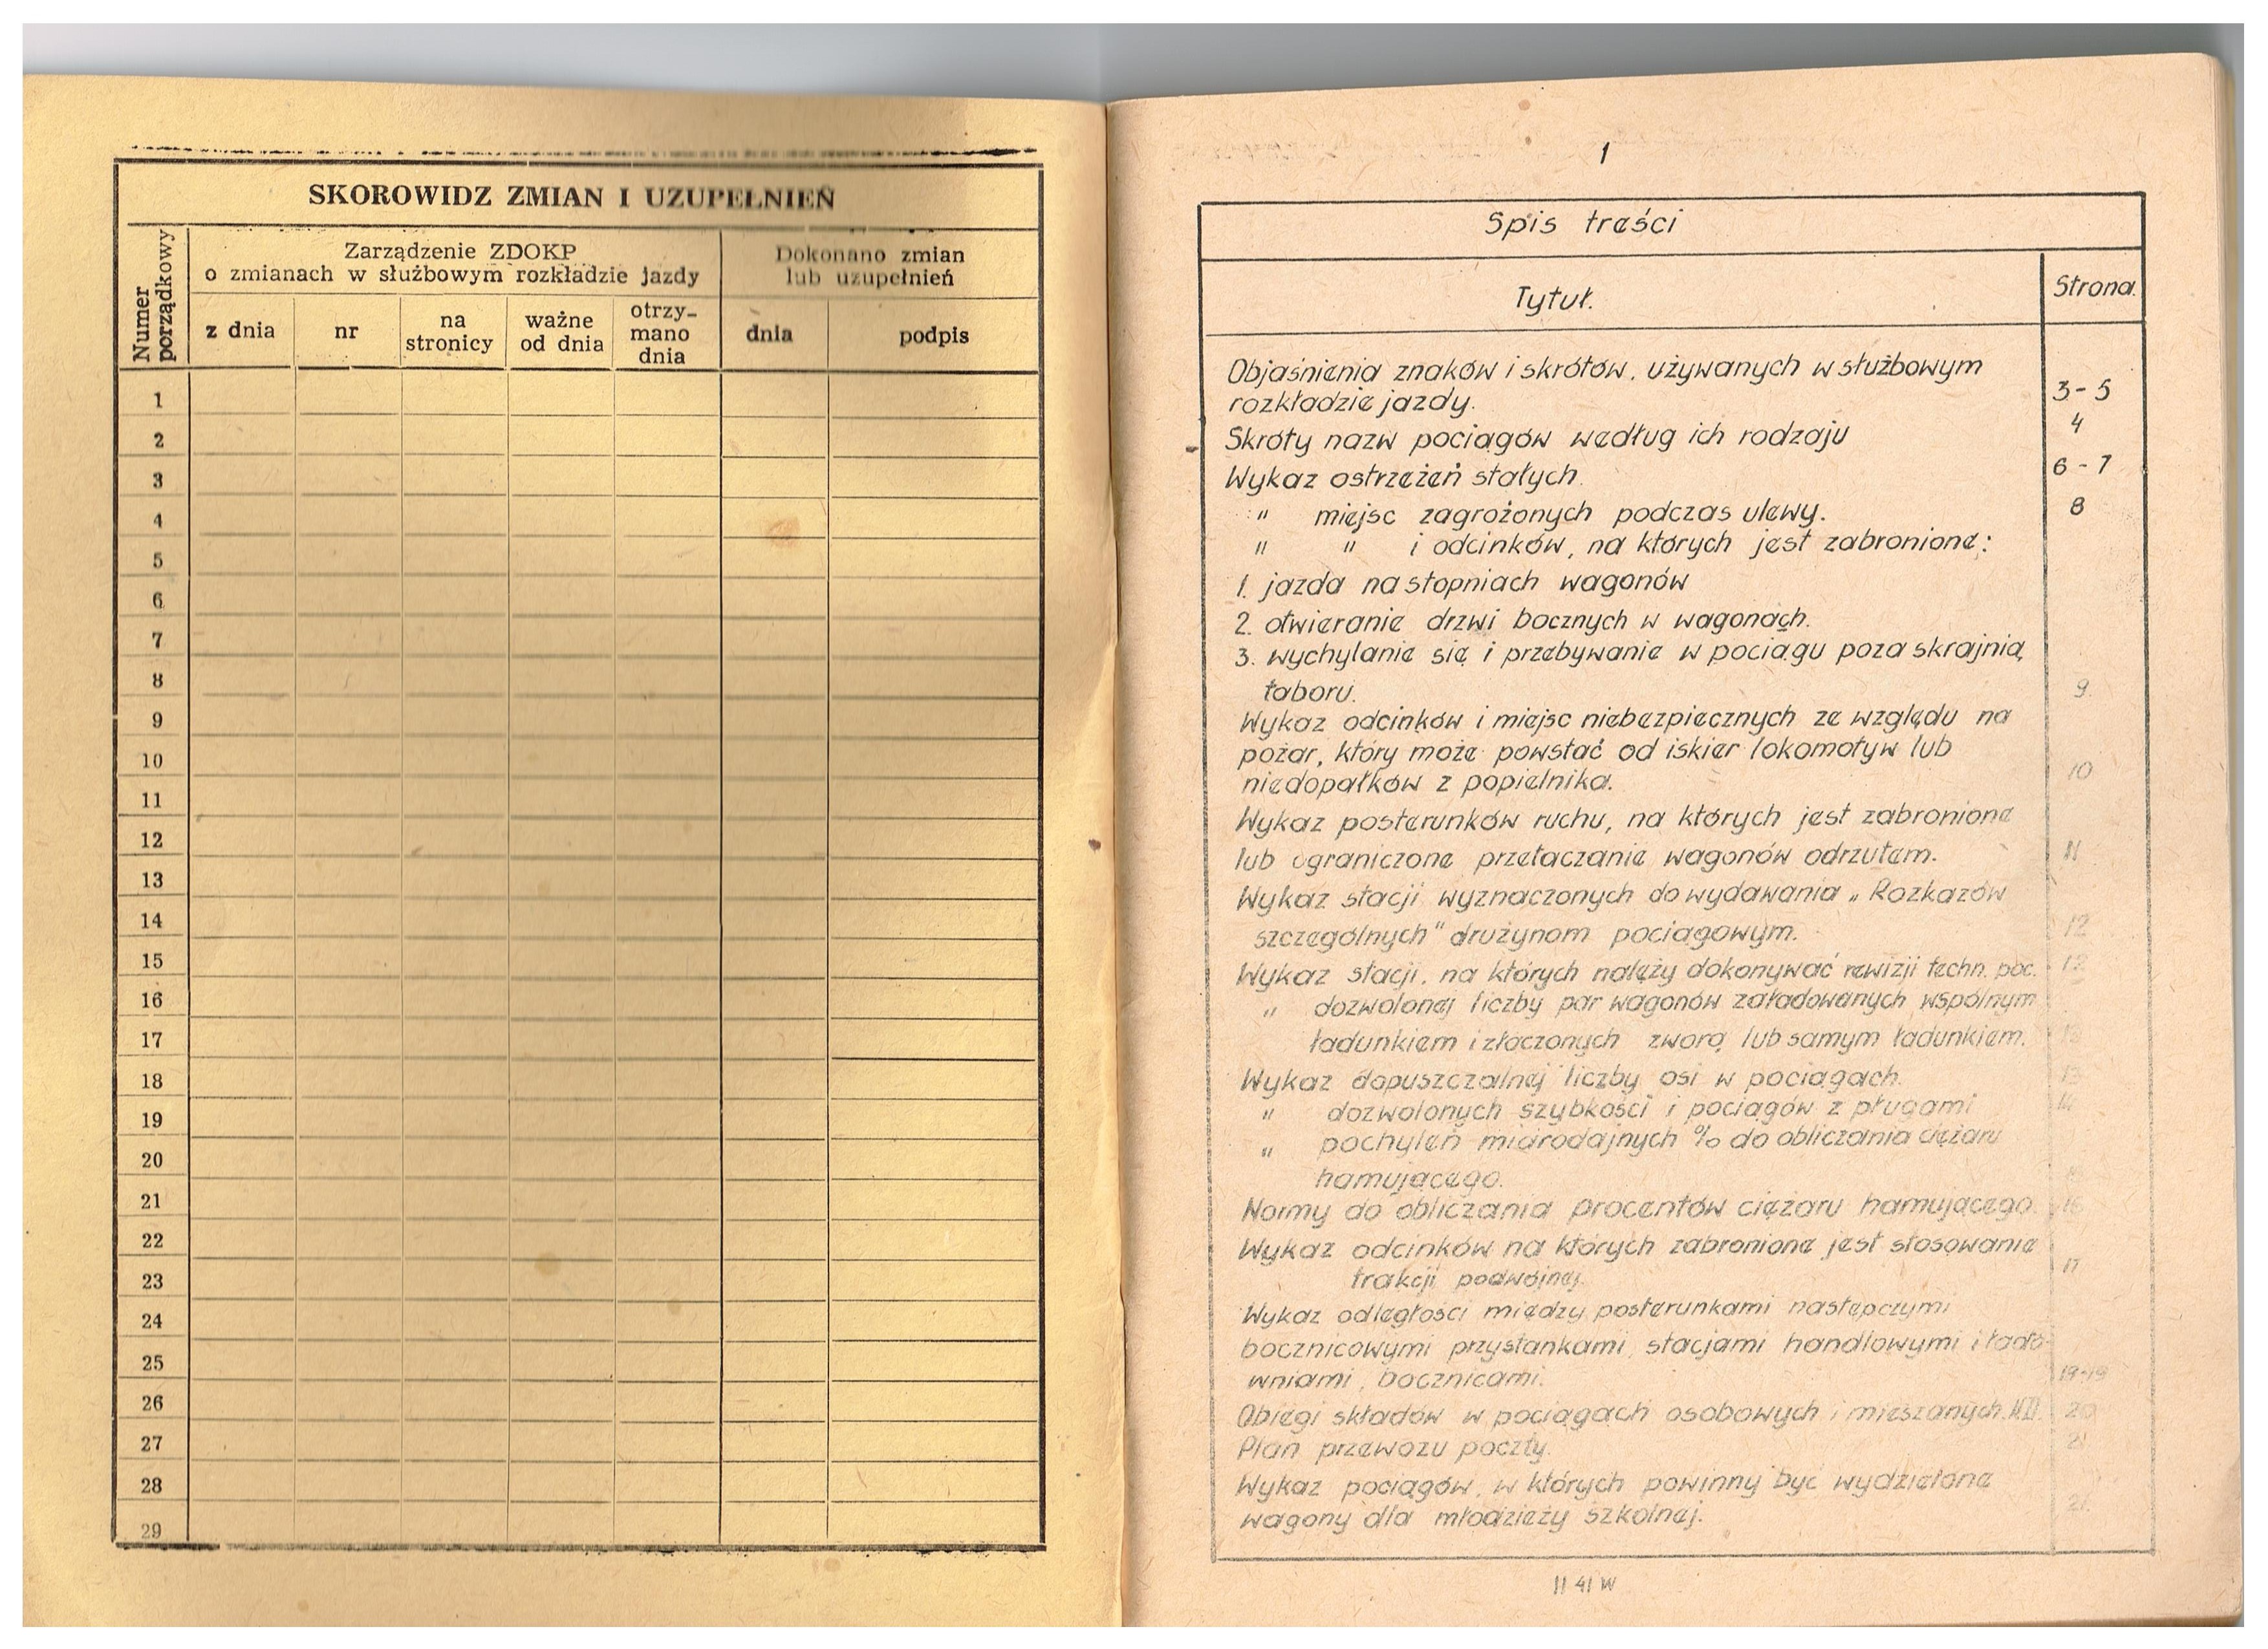 SKOROWIDZ ZMIAN I UZUPEŁNIEŃ
Numer porządkowy
Zarządzenie ZDOKP
o zmianach w służbowym rozkładzie jazdy
Dokonano zmian
lub uzupełnień
z dnia
nr
na
stronicy
ważne
od dnia
otrzy-
mano
dnia
dnia
podpis
1
2
3
4
5
6
7
8
9
10
11
12
13
14
15
16
17
18
19
20
21
22
23
24
25
26
27
28
29
1
Spis treści
Tytuł.
Strona.
Objaśnienia znaków i skrótów, używanych w służbowym
rozkładzie jazdy. 3-5
Skróty nazw pociągów według ich rodzaju 4
Wykaz ostrzeżeń stałych 6-7
" miejsc zagrożonych podczas ulewy. 8
" " i odcinków, na których jest zabronione:
1. jazda na stopniach wagonów
2. otwieranie drzwi bocznych w wagonach.
3. wychylanie się i przebywanie w pociągu poza skrajnią
taboru. 9.
Wykaz odcinków i miejsc niebezpiecznych ze względu na
pożar, który może powstać od iskier lokomotyw lub
niedopałków z popielnika. 10
Wykaz posterunków ruchu, na których jest zabronione
lub ograniczone przetaczanie wagonów odrzutem. 11
Wykaz stacji wyznaczonych do wydawania „Rozkazów
szczególnych" drużynom pociągowym. 12
Wykaz stacji, na których należy dokonywać rewizji techn. poc. 12
" dozwolonej liczby par wagonów załadowanych wspólnym
ładunkiem i złączonych zworą lub samym ładunkiem. 13
Wykaz dopuszczalnej liczby osi w pociągach. 13
" dozwolonych szybkości i pociągów z pługami 14
" pochyleń miarodajnych % do obliczania ciężaru
hamującego.
Normy do obliczania procentów ciężaru hamującego. 16
Wykaz odcinków na których zabronione jest stosowanie
trakcji podwójnej. 17
Wykaz odległości między posterunkami następczymi
bocznicowymi przystankami, stacjami handlowymi i łado-
wniami, bocznicami. 18-19
Obiegi składów w pociągach osobowych i mieszanych. 20
Plan przewozu poczty. 21
Wykaz pociągów, w których powinny być wydzielone
wagony dla młodzieży szkolnej. 21.
11 41 W